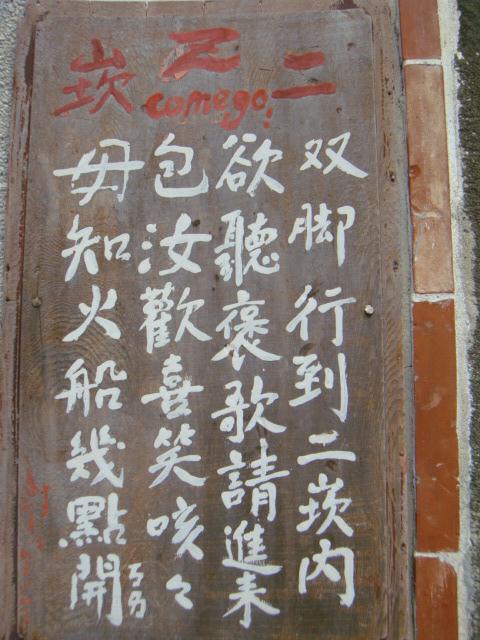 二
崁
comego!
双脚行到二崁内
欲聽褒歌請進来
包汝歡喜笑咳々
毋知火船幾點開